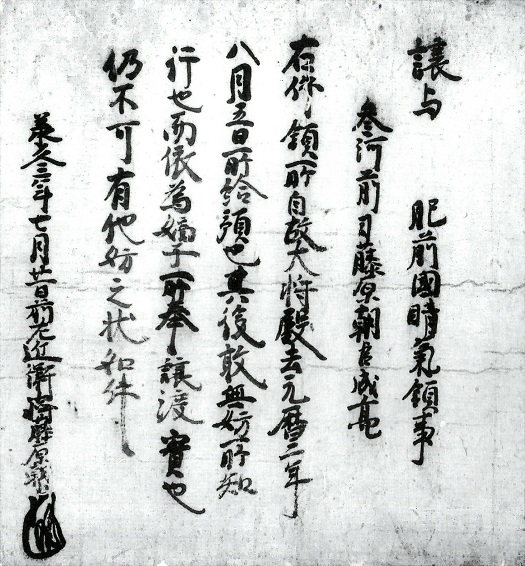 讓与　肥前國晴氣領事
参河前司藤原朝臣成高
右件領所自故大将殿去元暦二年
八月五日所給預也其後敢無妨所知
行也而依為嫡子所奉讓渡實也
仍不可有他妨之状如件
承久三年七月廿一日前右近衛将監藤原